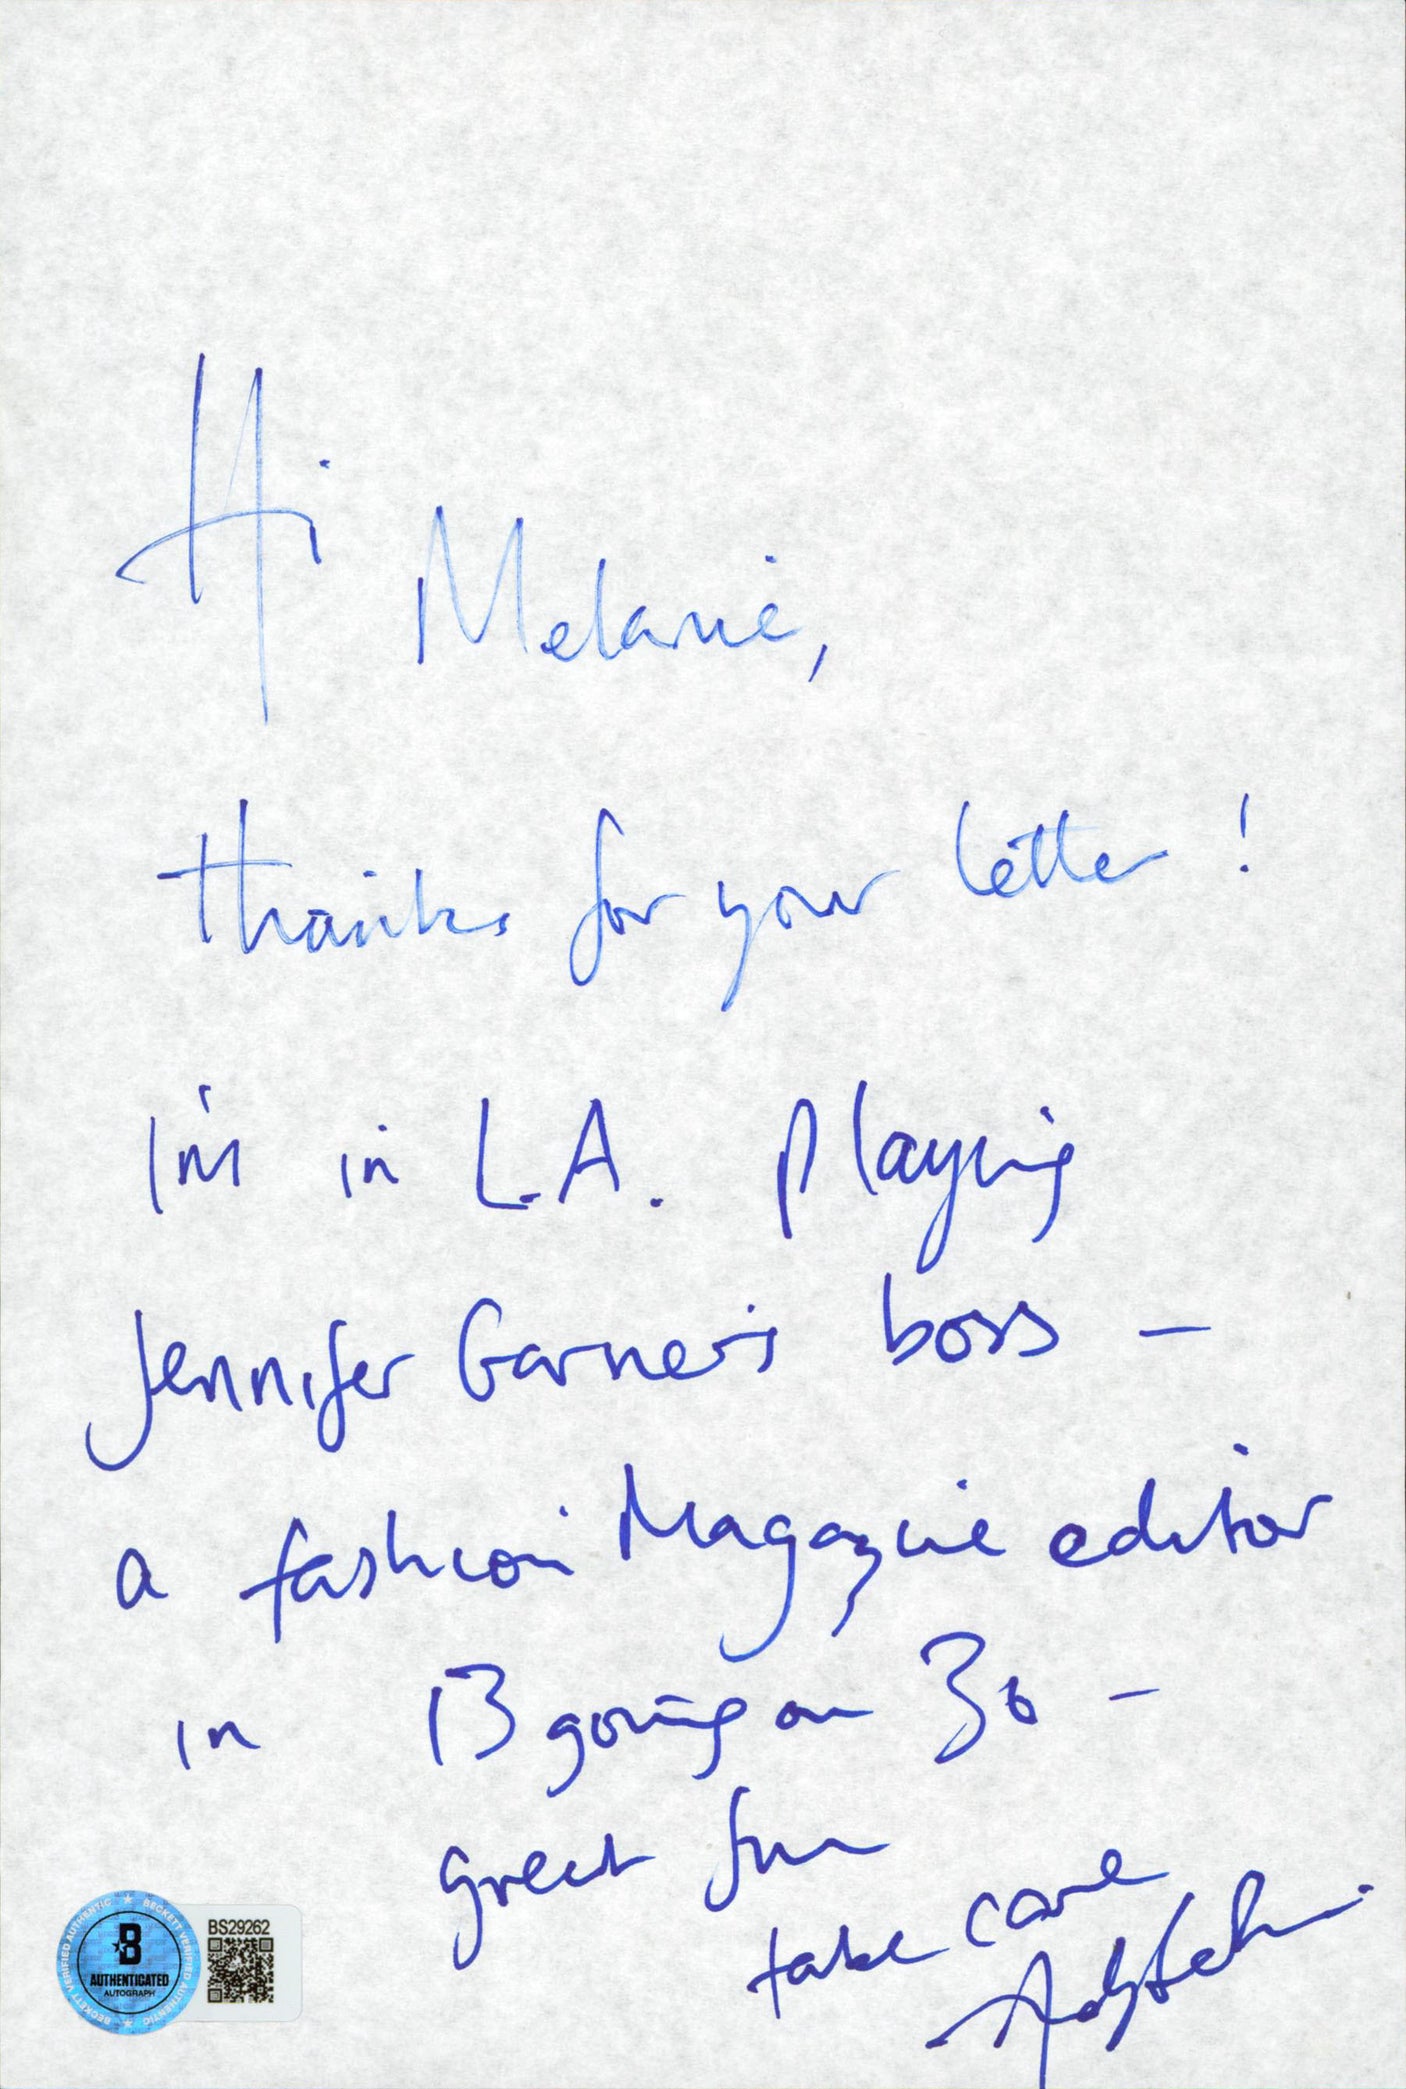 Hi Melanie,
thanks for your letter!
I'm in L.A. playing
Jennifer Garner's boss –
a fashion Magazine editor
in 13 going on 30 –
great fun
take care
BECKETT VERIFIED AUTHENTIC
B
AUTHENTICATED
AUTOGRAPH
BECKETT VERIFIED AUTHENTIC
BS29262